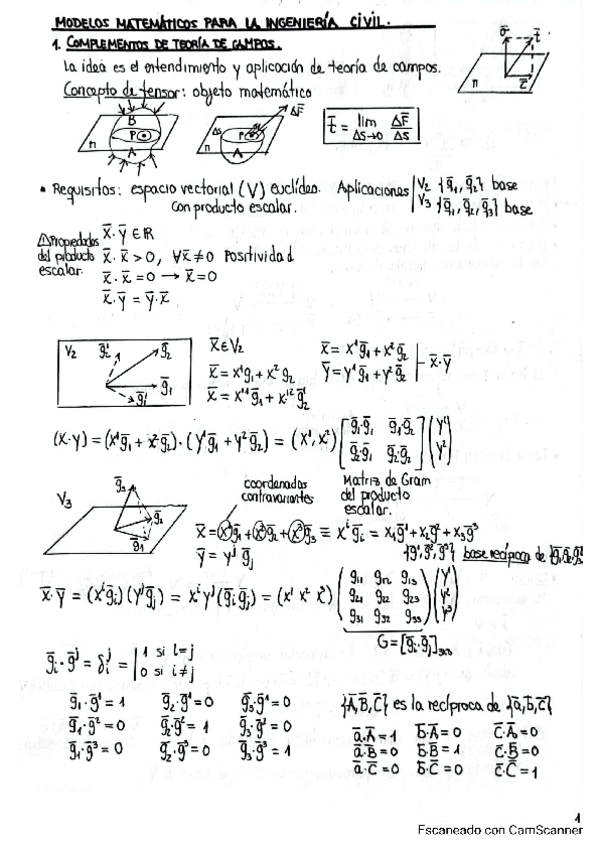 MODELOS MATEMÁTICOS PARA LA INGENIERÍA CIVIL.
1. COMPLEMENTOS DE TEORÍA DE CAMPOS.
La idea es el entendimiento y aplicación de teoría de campos.
Concepto de tensor: objeto matemático
σ̄ t̄ τ̄ π
B P A π
ΔF̄ Δs P A π
t̄ = lim Δs→0 ΔF̄/ΔS
• Requisitos: espacio vectorial (V) euclídeo. Aplicaciones | V₂ {ḡ₁, ḡ₂} base
con producto escalar. V₃ {ḡ₁, ḡ₂, ḡ₃} base
⚠ Propiedades del producto escalar.
x̄·ȳ ∈ ℝ
x̄·x̄ > 0, ∀x̄ ≠ 0 Positividad
x̄·x̄ = 0 → x̄ = 0
x̄·ȳ = ȳ·x̄
V₂ ḡ₂' ḡ₂ ḡ₁ ḡ₁'
x̄ ∈ V₂
x̄ = x¹g₁ + x² g₂
x̄ = x'¹ḡ₁ + x'²ḡ₂'
x̄ = x¹ḡ₁ + x²ḡ₂
ȳ = y¹ḡ₁ + y²ḡ₂ | x̄·ȳ
(x·y) = (x¹ḡ₁ + x²ḡ₂)·(y¹ḡ₁ + y²ḡ₂) = (x¹, x²) [ḡ₁·ḡ₁ ḡ₁·ḡ₂ ; ḡ₂·ḡ₁ ḡ₂·ḡ₂] (y¹ ; y²)
V₃ ḡ₃ ḡ₂ ḡ₁
coordenadas contravariantes
Matriz de Gram del producto escalar.
x̄ = x¹ḡ₁ + x²ḡ₂ + x³ḡ₃ = xⁱḡᵢ = x₁ḡ¹ + x₂ḡ² + x₃ḡ³
ȳ = yʲ ḡⱼ {ḡ¹, ḡ², ḡ³} base recíproca de {ḡ₁ḡ₂ḡ₃}
x̄·ȳ = (xⁱḡᵢ)(yʲḡⱼ) = xⁱyʲ(ḡᵢḡⱼ) = (x¹ x² x³) (g₁₁ g₁₂ g₁₃ ; g₂₁ g₂₂ g₂₃ ; g₃₁ g₃₂ g₃₃) (y¹ ; y² ; y³)
G = [ḡᵢ·ḡⱼ]₃ₓ₃
ḡᵢ·ḡʲ = δᵢʲ = | 1 si i=j
0 si i≠j
ḡ₁·ḡ¹ = 1 ḡ₂·ḡ¹ = 0 ḡ₃·ḡ¹ = 0
ḡ₁·ḡ² = 0 ḡ₂·ḡ² = 1 ḡ₃·ḡ² = 0
ḡ₁·ḡ³ = 0 ḡ₂·ḡ³ = 0 ḡ₃·ḡ³ = 1
{Ā, B̄, C̄} es la recíproca de {ā, b̄, c̄}
ā·Ā = 1 b̄·Ā = 0 c̄·Ā = 0
ā·B̄ = 0 b̄·B̄ = 1 c̄·B̄ = 0
ā·C̄ = 0 b̄·C̄ = 0 c̄·C̄ = 1
1
Escaneado con CamScanner